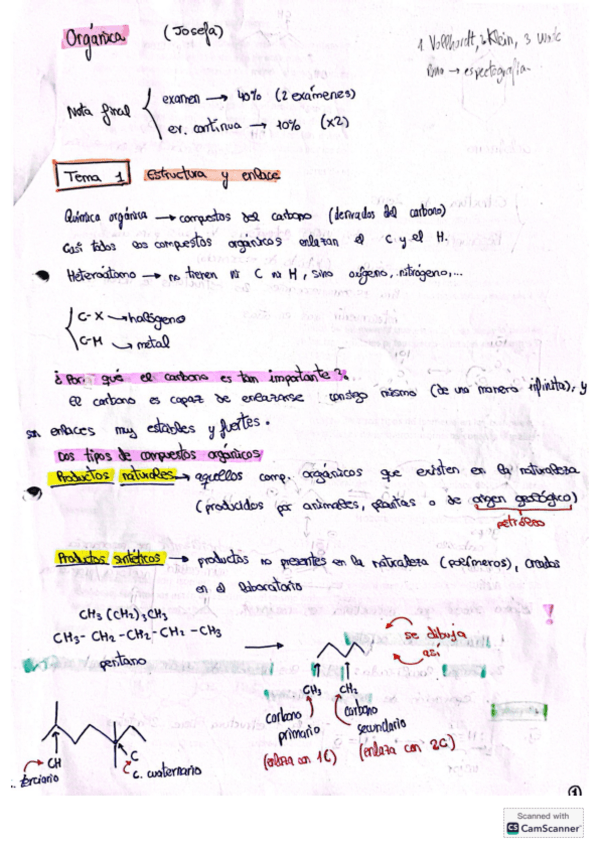 Orgánica (Josefa)
1 Vollhardt, 2 Klein, 3 Wade
→ espectografia
Nota final
examen → 40% (2 exámenes)
ev. continua → 10% (x2)
Tema 1 Estructura y enlace
Química orgánica → compuestos del carbono (derivados del carbono)
Casi todos los compuestos orgánicos enlazan el C y el H.
Heteroátomo → no tienen ni C no H, sino oxígeno, nitrógeno,...
C-X → halógeno
C-M → metal
¿Por qué el carbono es tan importante?
El carbono es capaz de enlazarse consigo mismo (de una manera infinita), y
son enlaces muy estables y fuertes.
Dos tipos de compuestos orgánicos
Productos naturales → aquellos comp. orgánicos que existen en la naturaleza
(producidos por animales, plantas o de origen geológico)
petróleo
Productos sintéticos → productos no presentes en la naturaleza (polímeros), creados
en el laboratorio
CH3 (CH2)3CH3
CH3 - CH2 - CH2 - CH2 - CH3
pentano
→
se dibuja
así
CH3 CH2
carbono primario
(enlaza con 1C)
carbono secundario
(enlaza con 2C)
CH
c. terciario
C
c. cuaternario
1
Scanned with
CS CamScanner